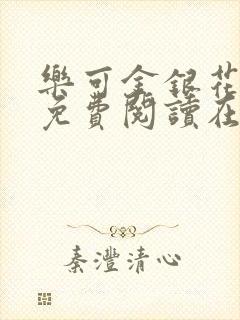 樂可金銀花
免費閱讀在
秦灃清心